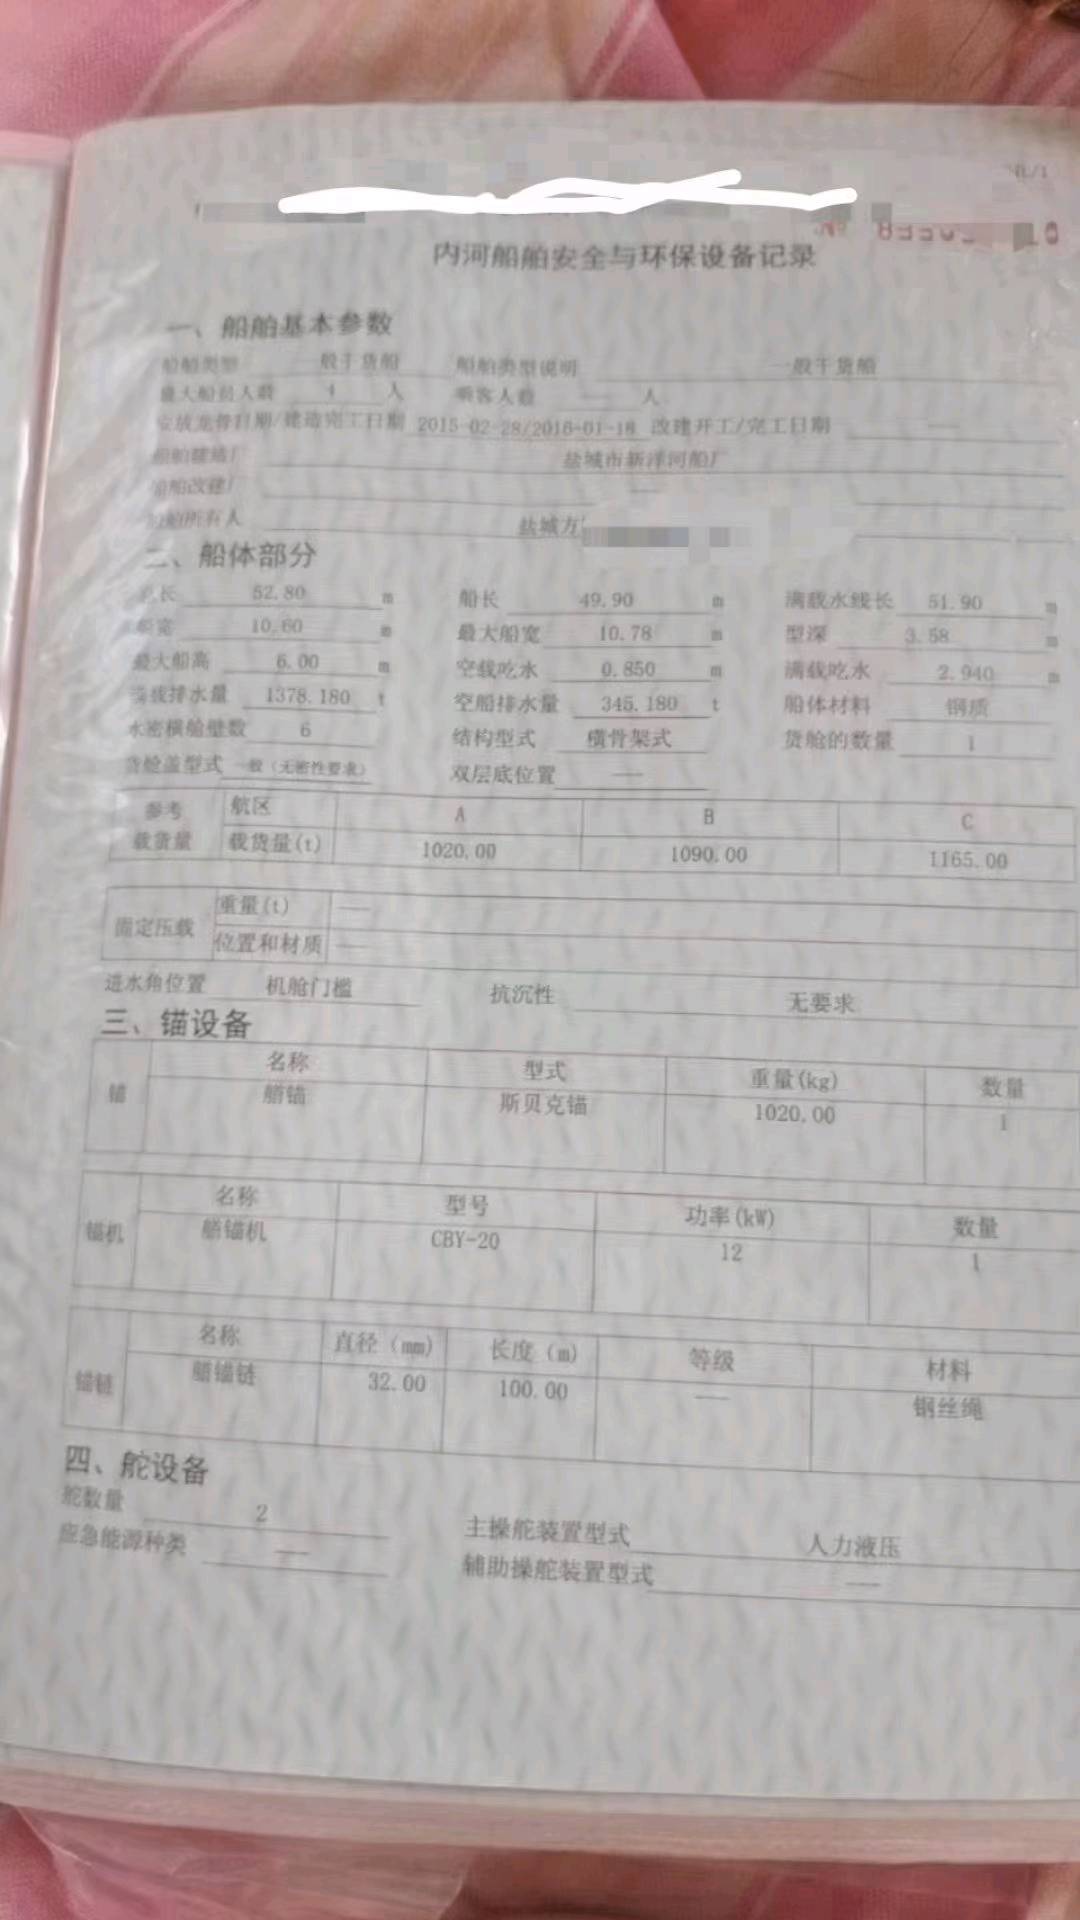 内河船舶安全与环保设备记录
一、船舶基本参数
船舶类型 一般干货船 船舶类型说明 一般干货船
最大船员人数 4 人 乘客人数 — 人
安放龙骨日期/建造完工日期 2015-02-28/2016-01-18 改建开工/完工日期 —
船舶建造厂 盐城市新洋河船厂
船舶改建厂 —
船舶所有人 盐城方
二、船体部分
总长 52.80 m 船长 49.90 m 满载水线长 51.90 m
船宽 10.60 m 最大船宽 10.78 m 型深 3.58 m
最大船高 6.00 m 空载吃水 0.850 m 满载吃水 2.940 m
满载排水量 1378.180 t 空船排水量 345.180 t 船体材料 钢质
水密横舱壁数 6 结构型式 横骨架式 货舱的数量 1
货舱盖型式 一般(无密性要求) 双层底位置 —
参考 航区 A B C
载货量 载货量(t) 1020.00 1090.00 1165.00
固定压载 重量(t) —
位置和材质 —
进水角位置 机舱门槛 抗沉性 无要求
三、锚设备
锚 名称 型式 重量(kg) 数量
艏锚 斯贝克锚 1020.00 1
锚机 名称 型号 功率(kW) 数量
艏锚机 CBY-20 12 1
锚链 名称 直径(mm) 长度(m) 等级 材料
艏锚链 32.00 100.00 — 钢丝绳
四、舵设备
舵数量 2 主操舵装置型式 人力液压
应急能源种类 — 辅助操舵装置型式 —